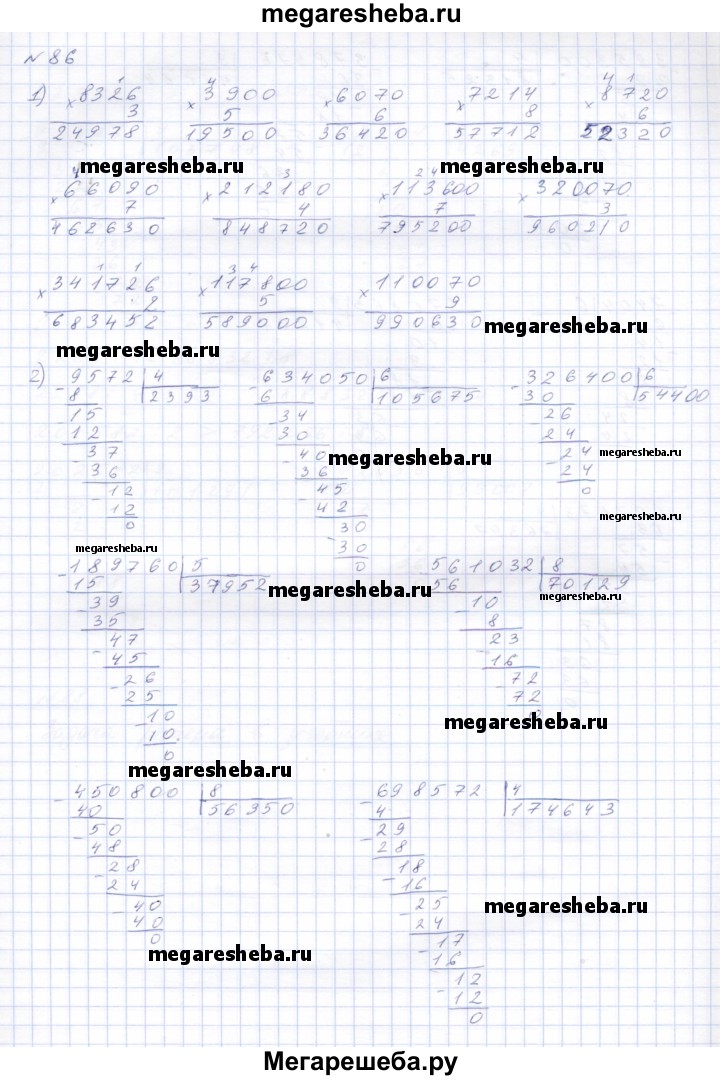 megaresheba.ru
№ 86
1) × 8326 × 3900 × 6070 × 7214 × 8720
3 5 6 8 6
24978 19500 36420 57712 52320
megaresheba.ru megaresheba.ru
× 66090 × 212180 × 113600 × 320070
7 4 7 3
462630 848720 795200 960210
× 341726 × 117800 × 110070
2 5 9
683452 589000 990630
megaresheba.ru
megaresheba.ru
2) 9572 | 4
2393
- 8
- 15
12
- 37
36
- 12
12
0
- 634050 | 6
105675
6
- 34
30
- 40
36
- 45
42
30
30
0
megaresheba.ru
- 326400 | 6
54400
30
- 26
24
- 24
24
0
megaresheba.ru
megaresheba.ru
megaresheba.ru
- 189760 | 5
37952
15
- 39
35
- 47
45
- 26
25
- 10
10
0
megaresheba.ru
- 561032 | 8
70129
56
- 10
8
- 23
16
- 72
72
0
megaresheba.ru
megaresheba.ru
megaresheba.ru
- 450800 | 8
56350
40
- 50
48
- 28
24
- 40
40
0
- 698572 | 4
174643
4
- 29
28
- 18
16
- 25
24
- 17
16
- 12
12
0
megaresheba.ru
megaresheba.ru
Мегарешеба.ру